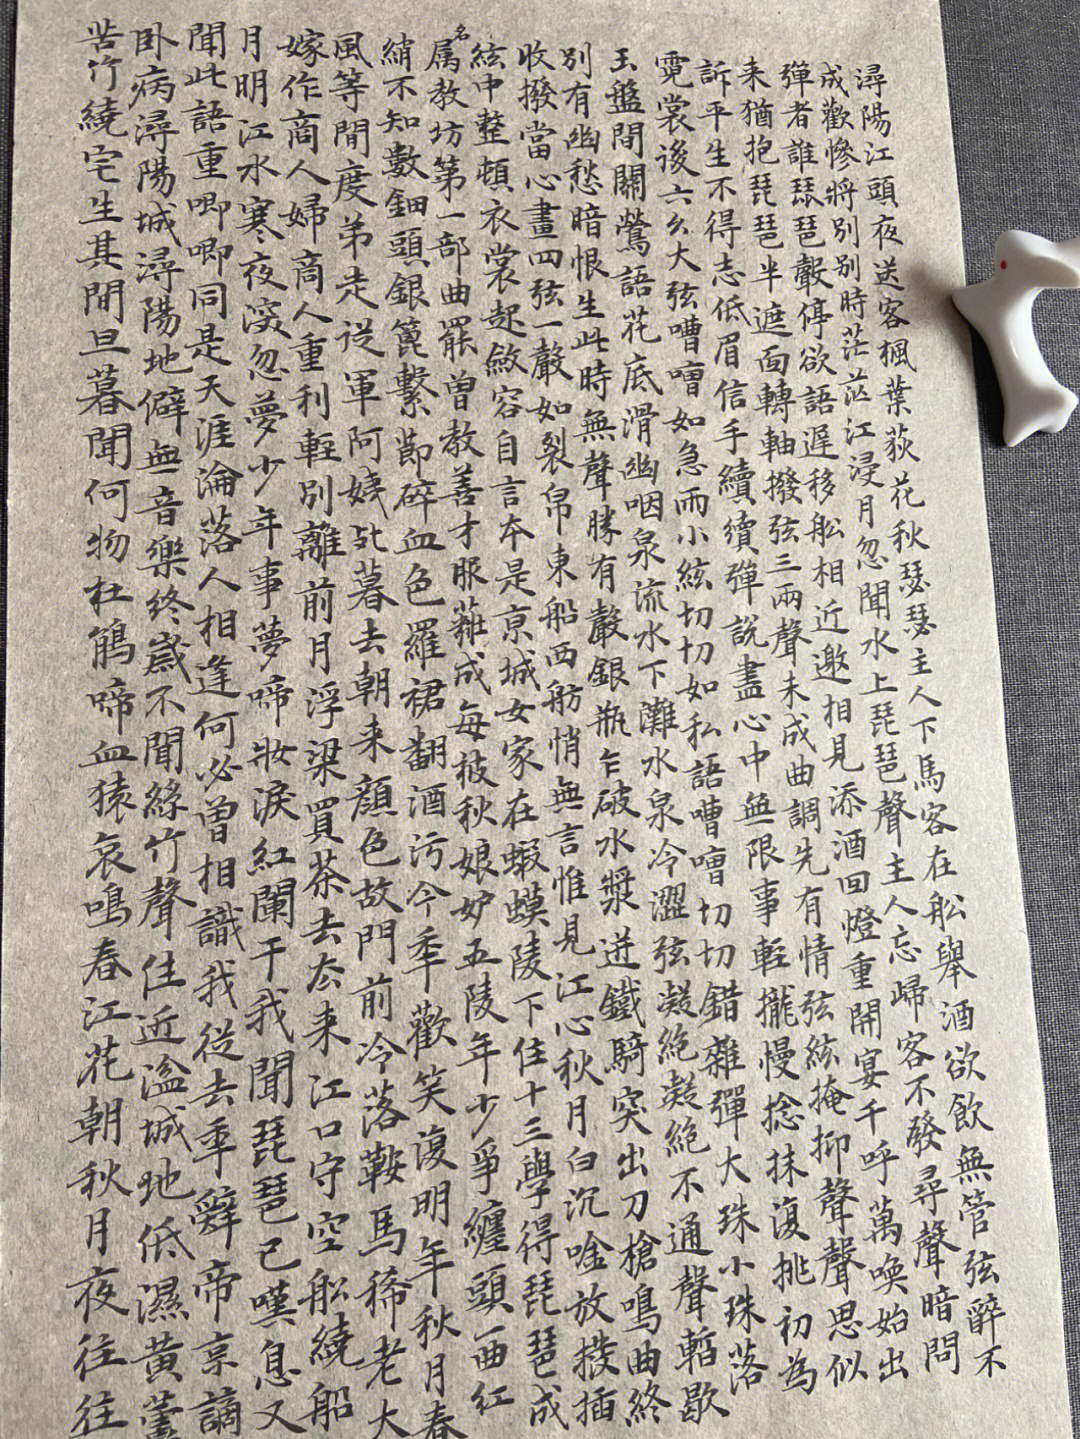 潯陽江頭夜送客楓葉荻花秋瑟瑟主人下馬客在船舉酒欲飲無管弦醉不
成歡慘將別別時茫茫江浸月忽聞水上琵琶聲主人忘歸客不發尋聲暗問
彈者誰琵琶聲停欲語遲移船相近邀相見添酒回燈重開宴千呼萬喚始出
来猶抱琵琶半遮面轉軸撥弦三兩聲未成曲調先有情弦絃掩抑聲聲思似
訴平生不得志低眉信手續續彈說盡心中無限事輕攏慢捻抹復挑初為
霓裳後六幺大弦嘈嘈如急雨小絃切切如私語嘈嘈切切錯雜彈大珠小珠落
玉盤間關鶯語花底滑幽咽泉流水下灘水泉冷澀弦凝絕凝絕不通聲暫歇
別有幽愁暗恨生此時無聲勝有聲銀瓶乍破水漿迸鐵騎突出刀槍鳴曲終
收撥當心畫四弦一聲如裂帛東船西舫悄無言惟見江心秋月白沉吟放撥插
絃中整頓衣裳起斂容自言本是京城女家在蝦蟆陵下住十三學得琵琶成
名属教坊第一部曲罷曾教善才服粧成每被秋娘妒五陵年少爭纏頭一曲紅
綃不知數鈿頭銀篦擊節碎血色羅裙翻酒污今年歡笑復明年秋月春
風等閒度弟走從軍阿姨死暮去朝来顔色故門前冷落鞍馬稀老大
嫁作商人婦商人重利輕別離前月浮梁買茶去去来江口守空船繞船
月明江水寒夜深忽夢少年事夢啼妝淚紅闌干我聞琵琶已嘆息又
聞此語重唧唧同是天涯淪落人相逢何必曾相識我從去年辭帝京謫
卧病潯陽城潯陽地僻無音樂終歲不聞絲竹聲住近湓城地低濕黃蘆
苦竹繞宅生其間旦暮聞何物杜鵑啼血猿哀鳴春江花朝秋月夜往往